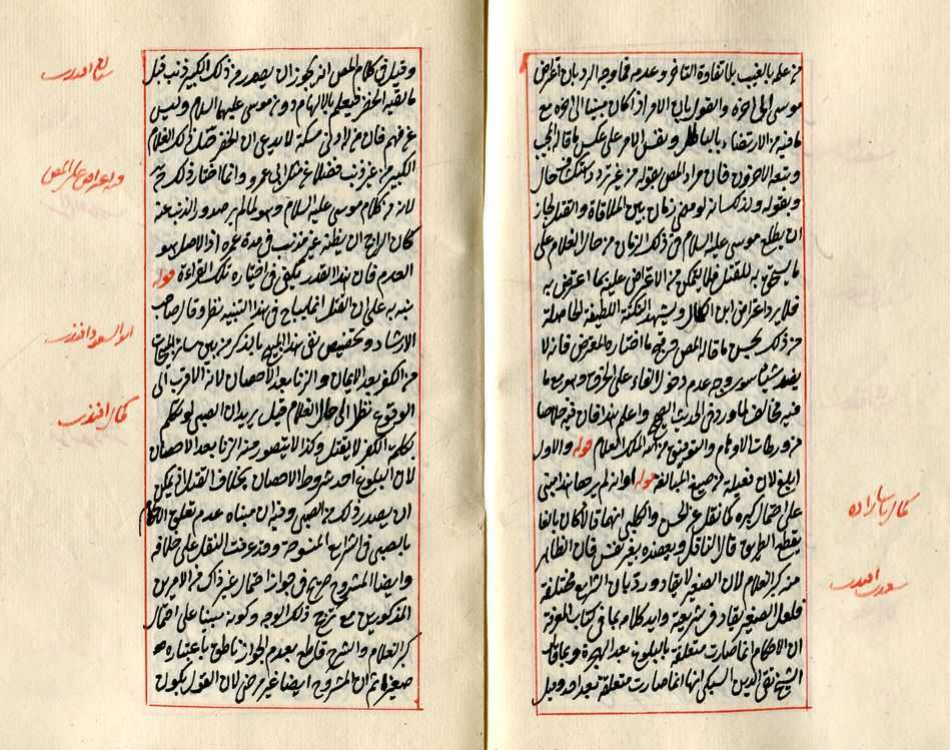 من علمه بالغيب بلا تفاوة التأخر وعدمه فما وجه الرد بان اعترض
موسى الى اخره والقول بان الامر اذا كان مبنيا الى اخره مع
ما فيه من الارتضاء بالباطل ونفس الامر على عكس ما قاله المجيب
وتبعه الاخرون فان مراد المص بقوله من غير تردد واستكشاف حال
وبقوله ولذلك انه لو مضى زمان بين الملاقاة والقتل لجاز
ان يطلع موسى عليه السلام في ذلك الزمان من حال الغلام على
ما يستحق به للقتل فلا يتمكن من الاعتراض عليه بما اعترض به
فلا يرد اعتراض ابن الكمال ويشهد النكتة اللطيفة الحاصلة
من ذلك بحسن ما قاله المص وقبح ما اختاره المعترض فانه لا
يفيد شيئا سوى وجه عدم دخول الفاء على خرق وهو مع ما
فيه مخالف لما ورد في الحديث الصحيح واعلم هذا فان فيه خلاصا
من ورطات الاوهام والتوفيق من الله الملك العلام قوله والاول
ابلغ لان فعيلة من صيغ المبالغة قوله او انه لم يرها هذا مبني
على احتمال كبره كما نقل عن الحسن والكلبي انهما قالا كان بالغا
يقطع الطريق قال الناقل ويعضده بغير نفس فان الظاهر
منه كبر الغلام لان الصغير لا يقاد ورد بان الشرايع مختلفة
فلعل الصغير يقاد في شريعته وايد كلامه بما في كتاب المعرفة
ان الاحكام انما صارت متعلقة بالبلوغ بعد الهجرة وبما قال
الشيخ تقي الدين السبكي انها انما صارت متعلقة بعد احد وقيل
كمال پاشا زاده
سعدى افندى
وقيل في كلام المص انه يجوز ان يصدر من ذلك الكبير ذنب قبل
ما لقيه الخضر فيعلم بالالهام دون موسى عليهما السلام وليس
عن فهم فان من له ادنى مسكة لا يدعي ان الخضر قتل ذلك الغلام
الكبير من غير ذنب فضلا عن مثل ابي عمرو وانما اختار ذلك
لانه من كلام موسى عليه السلام وهو لما لم ير صدور الذنب عنه
كان الراجح ان يظنه غير مذنب في مدة عمره اذ الاصل هو
العدم فان هذا القدر يكفي في اختياره تلك القراءة قوله
منبه به على ان القتل انما يباح في هذا التنبيه نظر وقال صاحب
الارشاد وتخصيص نفي هذا المبيح بالذكر من بين سائر المبيحات
من الكفر بعد الايمان والزنا بعد الاحصان لانه الاقرب الى
الوقوع نظرا الى حال الغلام قيل يريد ان الصبي لو تكلم
بكلمة الكفر لا يقتل وكذا لا يتصور منه الزنا بعد الاحصان
لان البلوغ احد شروط الاحصان بخلاف القتل اذ يمكن
ان يصدر ذلك من الصبي وفيه ان مبناه عدم تعلق الاحكام
بالصبي في الشرايع المنسوخة وقد عرفت النقل على خلافه
وايضا المشروح صريح في جواز احتمال غير ذلك من الامرين
المذكورين مع ترجح ذلك الوجه وكونه مبنيا على احتمال
كبر الغلام والشرح قاطع بعدم الجواز ناطق باعتباره
صغيرا ثم ان المشروح ايضا غير مرضي لان القول بكون
صالح افندى
وبه اعتراض على المص
ابو السعود افندى
كمال افندى